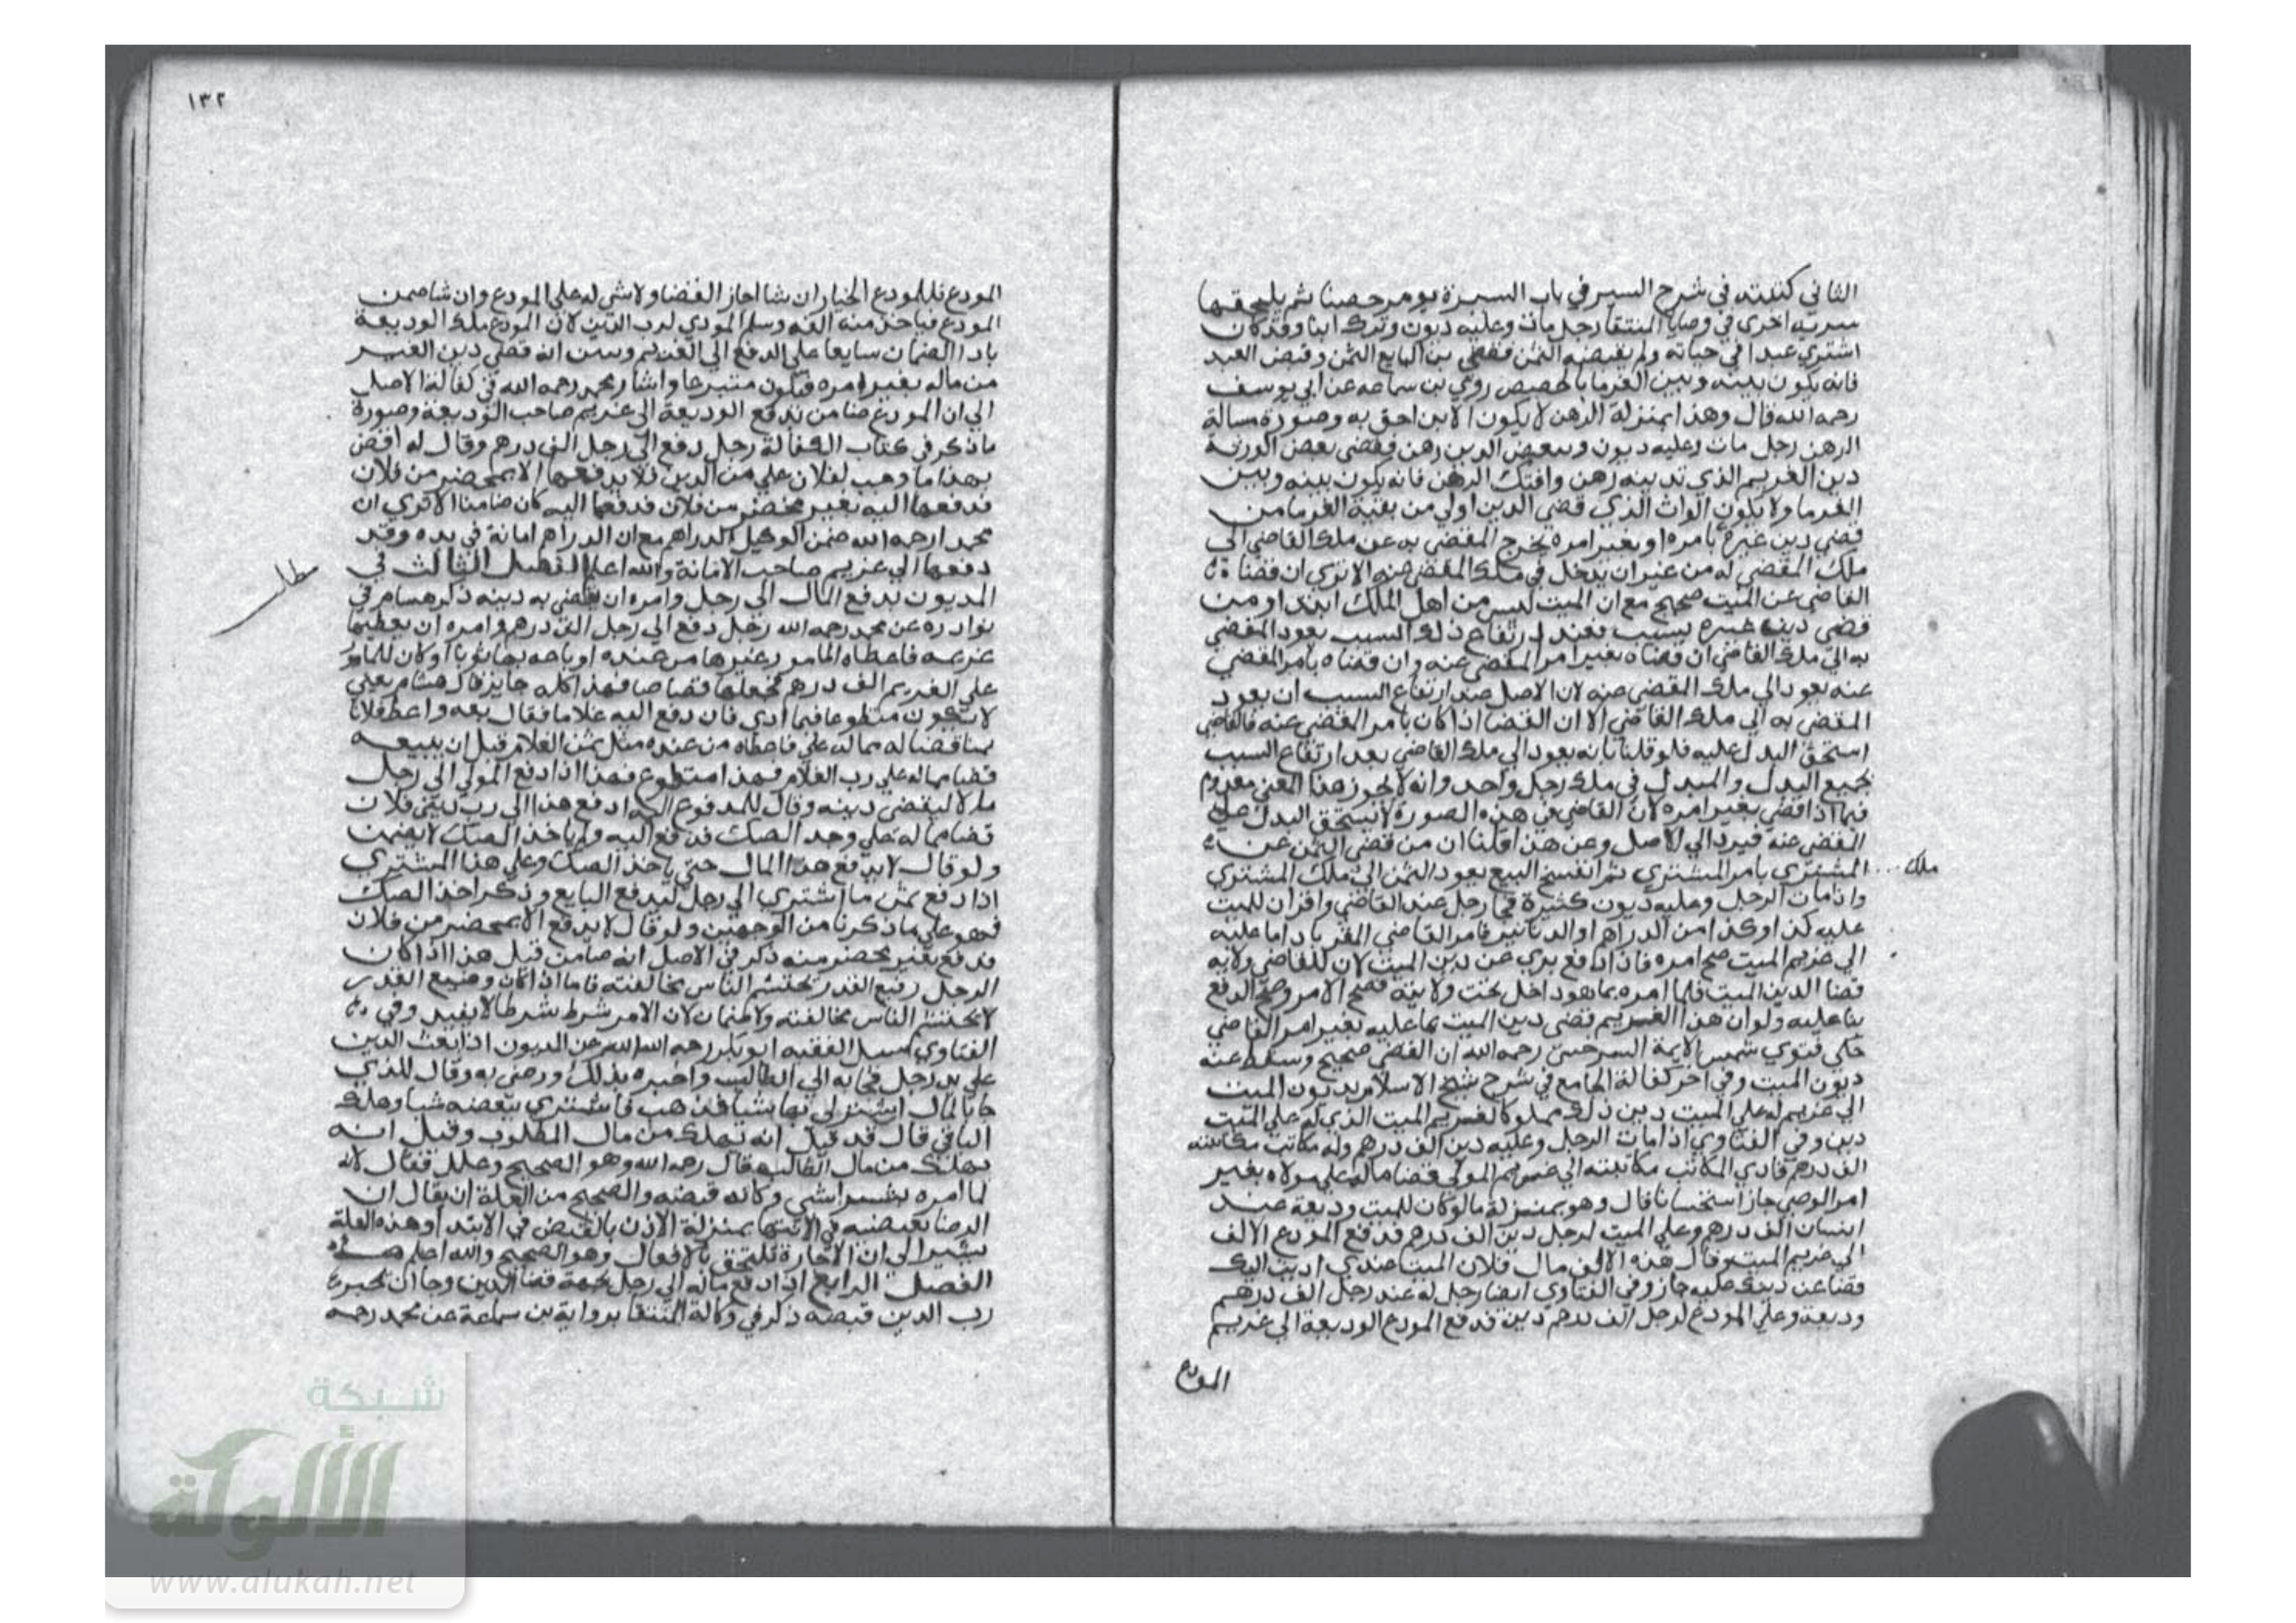 الثاني كتبته في شرح السير في باب السرية يومر حصنا ثم يلحقها
سرية اخرى في وصايا المنتقا رجل مات وعليه ديون وترك ابنا وقد كان
اشتري عبدا في حياته ولم يقبضه الثمن فقضي بن البايع الثمن وقبض العبد
فانه يكون بينه وبين الغرما بالحصص روي بن سماعه عن ابي يوسف
رحمه الله قال وهذا بمنزلة الرهن لا يكون الابن احق به وصورة مسالة
الرهن رجل مات وعليه ديون وببعض الدين رهن فقضي بعض الورثة
دين الغريم الذي بدينه رهن وافتك الرهن فانه يكون بينه وبين
الغرما ولا يكون الوارث الذي قضي الدين اولي من بقية الغرما من
قضي دين غيره بامره او بغير امره يخرج المقضي به عن ملك القاضي الي
ملك المقضي له من غير ان يدخل في ملك المقضي عنه الا تري ان قضا
القاضي عن الميت صحيح مع ان الميت ليس من اهل الملك ابتدا ومن
قضي دين غيره بسبب فعند ارتفاع ذلك السبب يعود المقضي
به الي ملك القاضي ان قضاه بغير امر المقضي عنه وان قضاه بامر المقضي
عنه يعود الي ملك المقضي عنه لان الاصل عند ارتفاع السبب ان يعود
المقضي به الي ملك القاضي الا ان القضا اذا كان بامر المقضي عنه فالقاضي
استحق البدل عليه فلو قلنا بانه يعود الي ملك القاضي بعد ارتفاع السبب
يجمع البدل والمبدل في ملك رجل واحد وانه لا يجوز هذا المعني معدوم
فيما اذا قضي بغير امره لان القاضي في هذه الصورة لا يستحق البدل علي
المقضي عنه فيرد الي الاصل وعن هذا قلنا ان من قضي الثمن عن
المشتري بامر المشتري ثم انفسخ البيع يعود الثمن الي ملك المشتري
ملك
واذا مات الرجل وعليه ديون كثيرة فجا رجل عند القاضي واقر ان للميت
عليه كذا وكذا من الدراهم او الدنانير فامر القاضي المقر باداما عليه
الي غريم الميت صح امره فاذا دفع بري عن دين الميت لان للقاضي ولاية
قضا الدين الميت فلما امره بما هو داخل تحت ولايته فصح الامر وصح الدفع
بنا عليه ولو ان هذا الغريم قضي دين الميت بما عليه بغير امر القاضي
حكي فتوي شمس الايمة السرخسي رحمه الله ان القضي صحيح وسقط عنه
ديون الميت وفي اخر كفالة الجامع في شرح شيخ الاسلام مديون الميت
الي غريم له علي الميت دين
دين وفي الفتاوي اذا مات الرجل وعليه دين الف درهم وله مكاتب مكاتبته
الف درهم فادي المكاتب مكاتبته الي غريم المولي قضا ماله علي مولاه بغير
امر الوصي جاز استحسانا قال وهو بمنزلة ما لو كان للميت وديعة عند
انسان الف درهم وعلي الميت لرجل دين الف درهم فدفع المودع الالف
الي غريم الميت وقال هذه الالف مال فلان الميت عندي اديت اليك
قضا عن دينك عليه جاز وفي الفتاوي ايضا رجل له عند رجل الف درهم
وديعة وعلي المودع لرجل الف درهم دين فدفع المودع الوديعة الي غريم
المودع
١٣٢
المودع فللمودع الخيار ان شا اجاز القضا ولا شي له علي المودع وان شا ضمن
المودع فياخذ منه الفه وسلم المودي لرب الدين لان المودع ملك الوديعة
بادا الضمان سابقا علي الدفع الي الغريم وبين انه قضي دين الغير
من ماله بغير امره فيكون متبرعا واشار محمد رحمه الله في كفالة الاصل
الي ان المودع ضامن بدفع الوديعة الي غريم صاحب الوديعة وصورة
ما ذكر في كتاب الكفالة رجل دفع الي رجل الف درهم وقال له اقض
بهذا ما وجب لفلان علي من الدين فلا يدفعها الا بمحضر من فلان
فدفعها اليه بغير محضر من فلان فدفعها اليه كان ضامنا الا تري ان
محمدا رحمه الله ضمن الوكيل الدراهم مع ان الدراهم امانة في يده وقد
دفعها الي غريم صاحب الامانة والله اعلم الفصل الثالث في
مطلب
المديون يدفع المال الي رجل وامره ان يقضي به دينه ذكر هشام في
نوادره عن محمد رحمه الله رجل دفع الي رجل الف درهم وامره ان يعطيها
غريمه فاعطاه المامور غيرها من عنده او باعه بها ثوبا او كان للمامور
علي الغريم الف درهم فجعلها قصاصا فهذا كله جايز قال هشام يعني
لا يكون متطوعا فيما ادي فان دفع اليه غلاما فقال بعه واعط فلانا
ثمنه قضا له مما له علي فاعطاه من عنده مثل ثمن الغلام قبل ان يبيعه
قضا مما له علي رب الغلام فهذا متطوع فهذا اذا دفع المولي الي رجل
مالا ليقضي دينه وقال للمدفوع اليه ادفع هذا الي رب ديني فلان
قضا مما له علي وخذ الصك فدفع اليه ولم ياخذ الصك لا يضمن
ولو قال لا يدفع هذا المال حتي ياخذ الصك وعلي هذا المشتري
اذا دفع ثمن ما اشتري الي رجل ليدفع البايع وذكر اخذ الصك
فهو علي ما ذكرنا من الوجهين ولو قال لا يدفع الا بمحضر من فلان
فدفع بغير محضر منه ذكر في الاصل انه ضامن قيل هذا اذا كان
الرجل رفيع القدر يحتشم الناس مخالفته فاما اذا كان وضيع القدر
لا يحتشم الناس مخالفته ولا ضمان لان الامر شرط شرطا لا يفيد وفي
الفتاوي سيل الفقيه ابو بكر رحمه الله عن المديون اذا بعث الدين
علي يد رجل فجا به الي الطالب واخبره بذلك ورضي به وقال للذي
جا بالمال اشتر لي بها شيا فذهب فاشتري ببعضه شيا وهلك
الباقي قال قد قيل انه يهلك من مال المطلوب وقيل انه
يهلك من مال الطالب قال رحمه الله وهو الصحيح وعلل فقال لانه
لما امره بشرا شي وكانه قبضه والصحيح من العلة ان يقال ان
الرضا بقبضه في الانتها بمنزلة الاذن بالقبض في الابتدا وهذه العلة
يشير الي ان الاجازة تلتحق بالافعال وهو الصحيح والله اعلم
الفصل الرابع اذا دفع ماله الي رجل بجهة قضا الدين وجا الي
رب الدين قبضه ذكر في وكالة المنتقا برواية بن سماعة عن محمد رحمه
شبكة
الألوكة
www.alukah.net